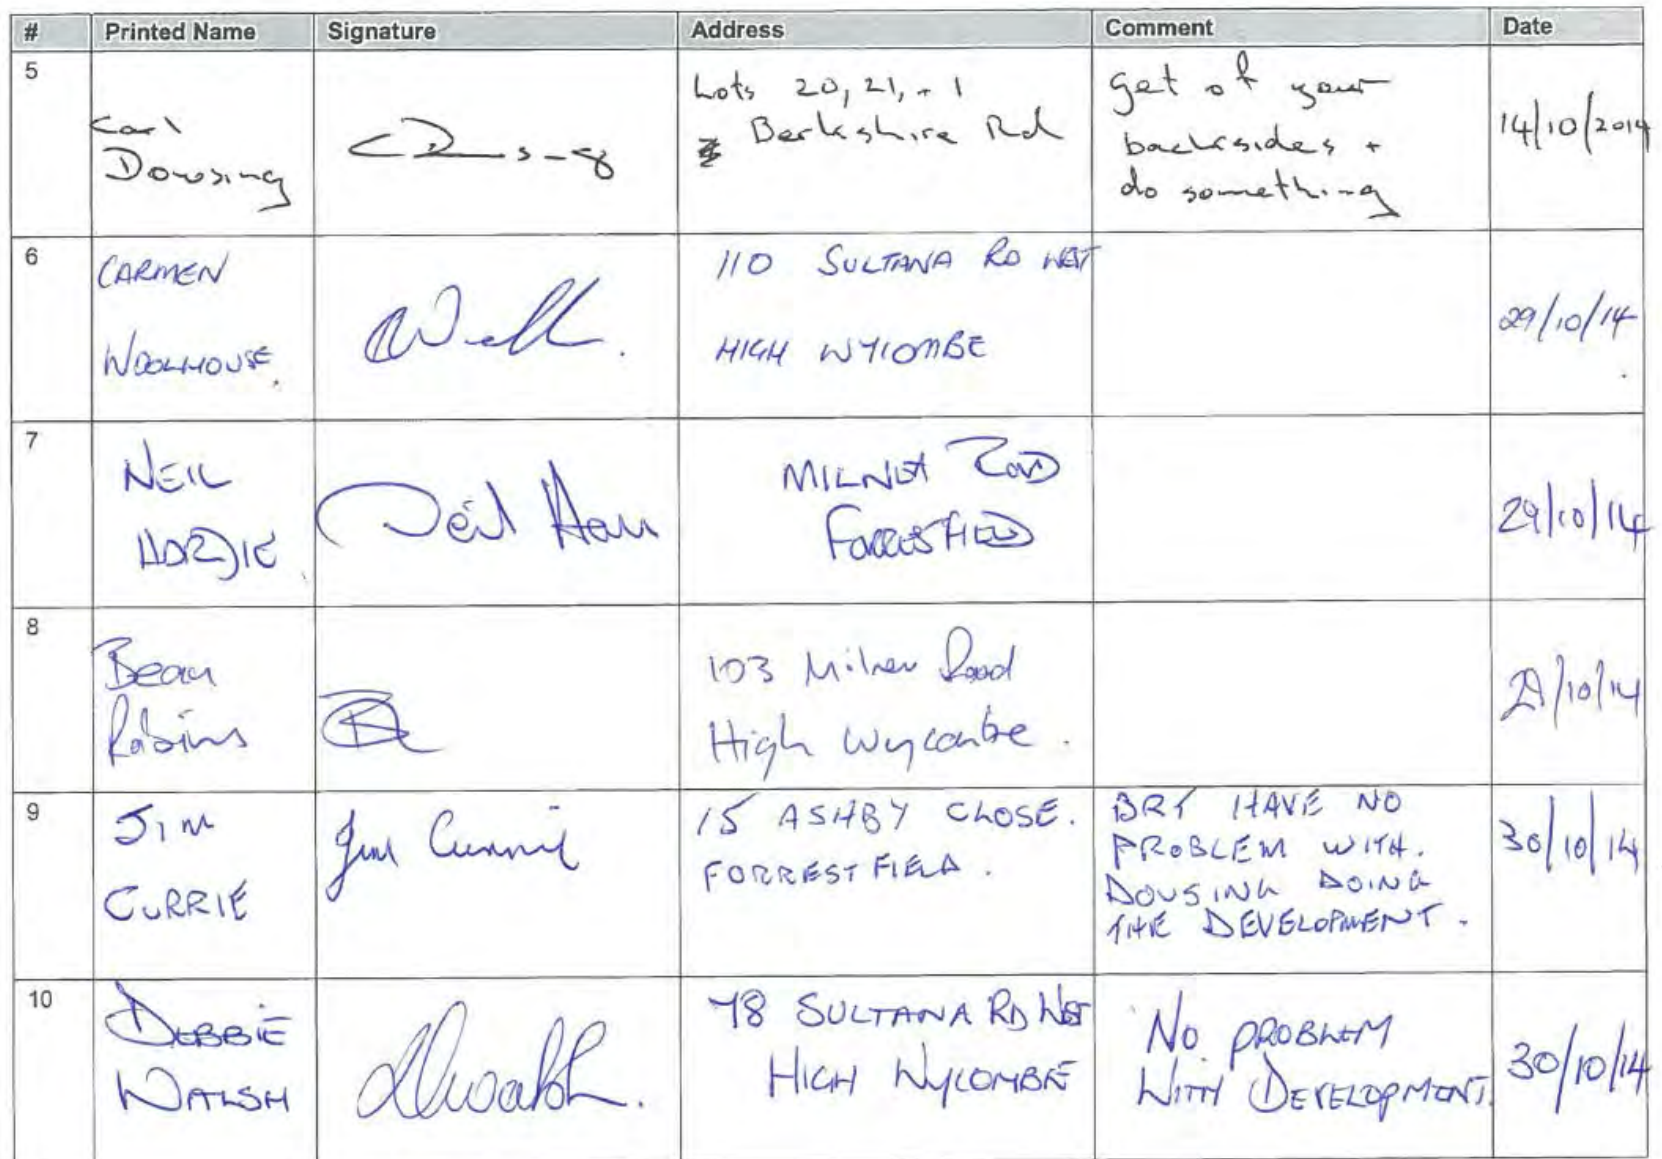 # Printed Name Signature Address Comment Date
5
Carl
Dowsing
Lots 20, 21, + 1
Berkshire Rd
get of your
backsides +
do something
14/10/2014
6
CARMEN
WOOLHOUSE.
110 SULTANA RD WEST
HIGH WYCOMBE
29/10/14
7
NEIL
HARDIE
Neil
MILNER ROAD
FORRESTFIELD
29/10/14
8
Robins
103 Milner Road
High Wycombe.
29/10/14
9
JIM
CURRIE
Jim Currie
15 ASHBY CLOSE.
FORRESTFIELD.
BRT HAVE NO
PROBLEM WITH.
DOUSING DOING
THE DEVELOPMENT.
30/10/14
10
DEBBIE
WALSH
DWalsh.
78 SULTANA RD WEST
HIGH WYCOMBE
NO PROBLEM
WITH DEVELOPMENT.
30/10/14